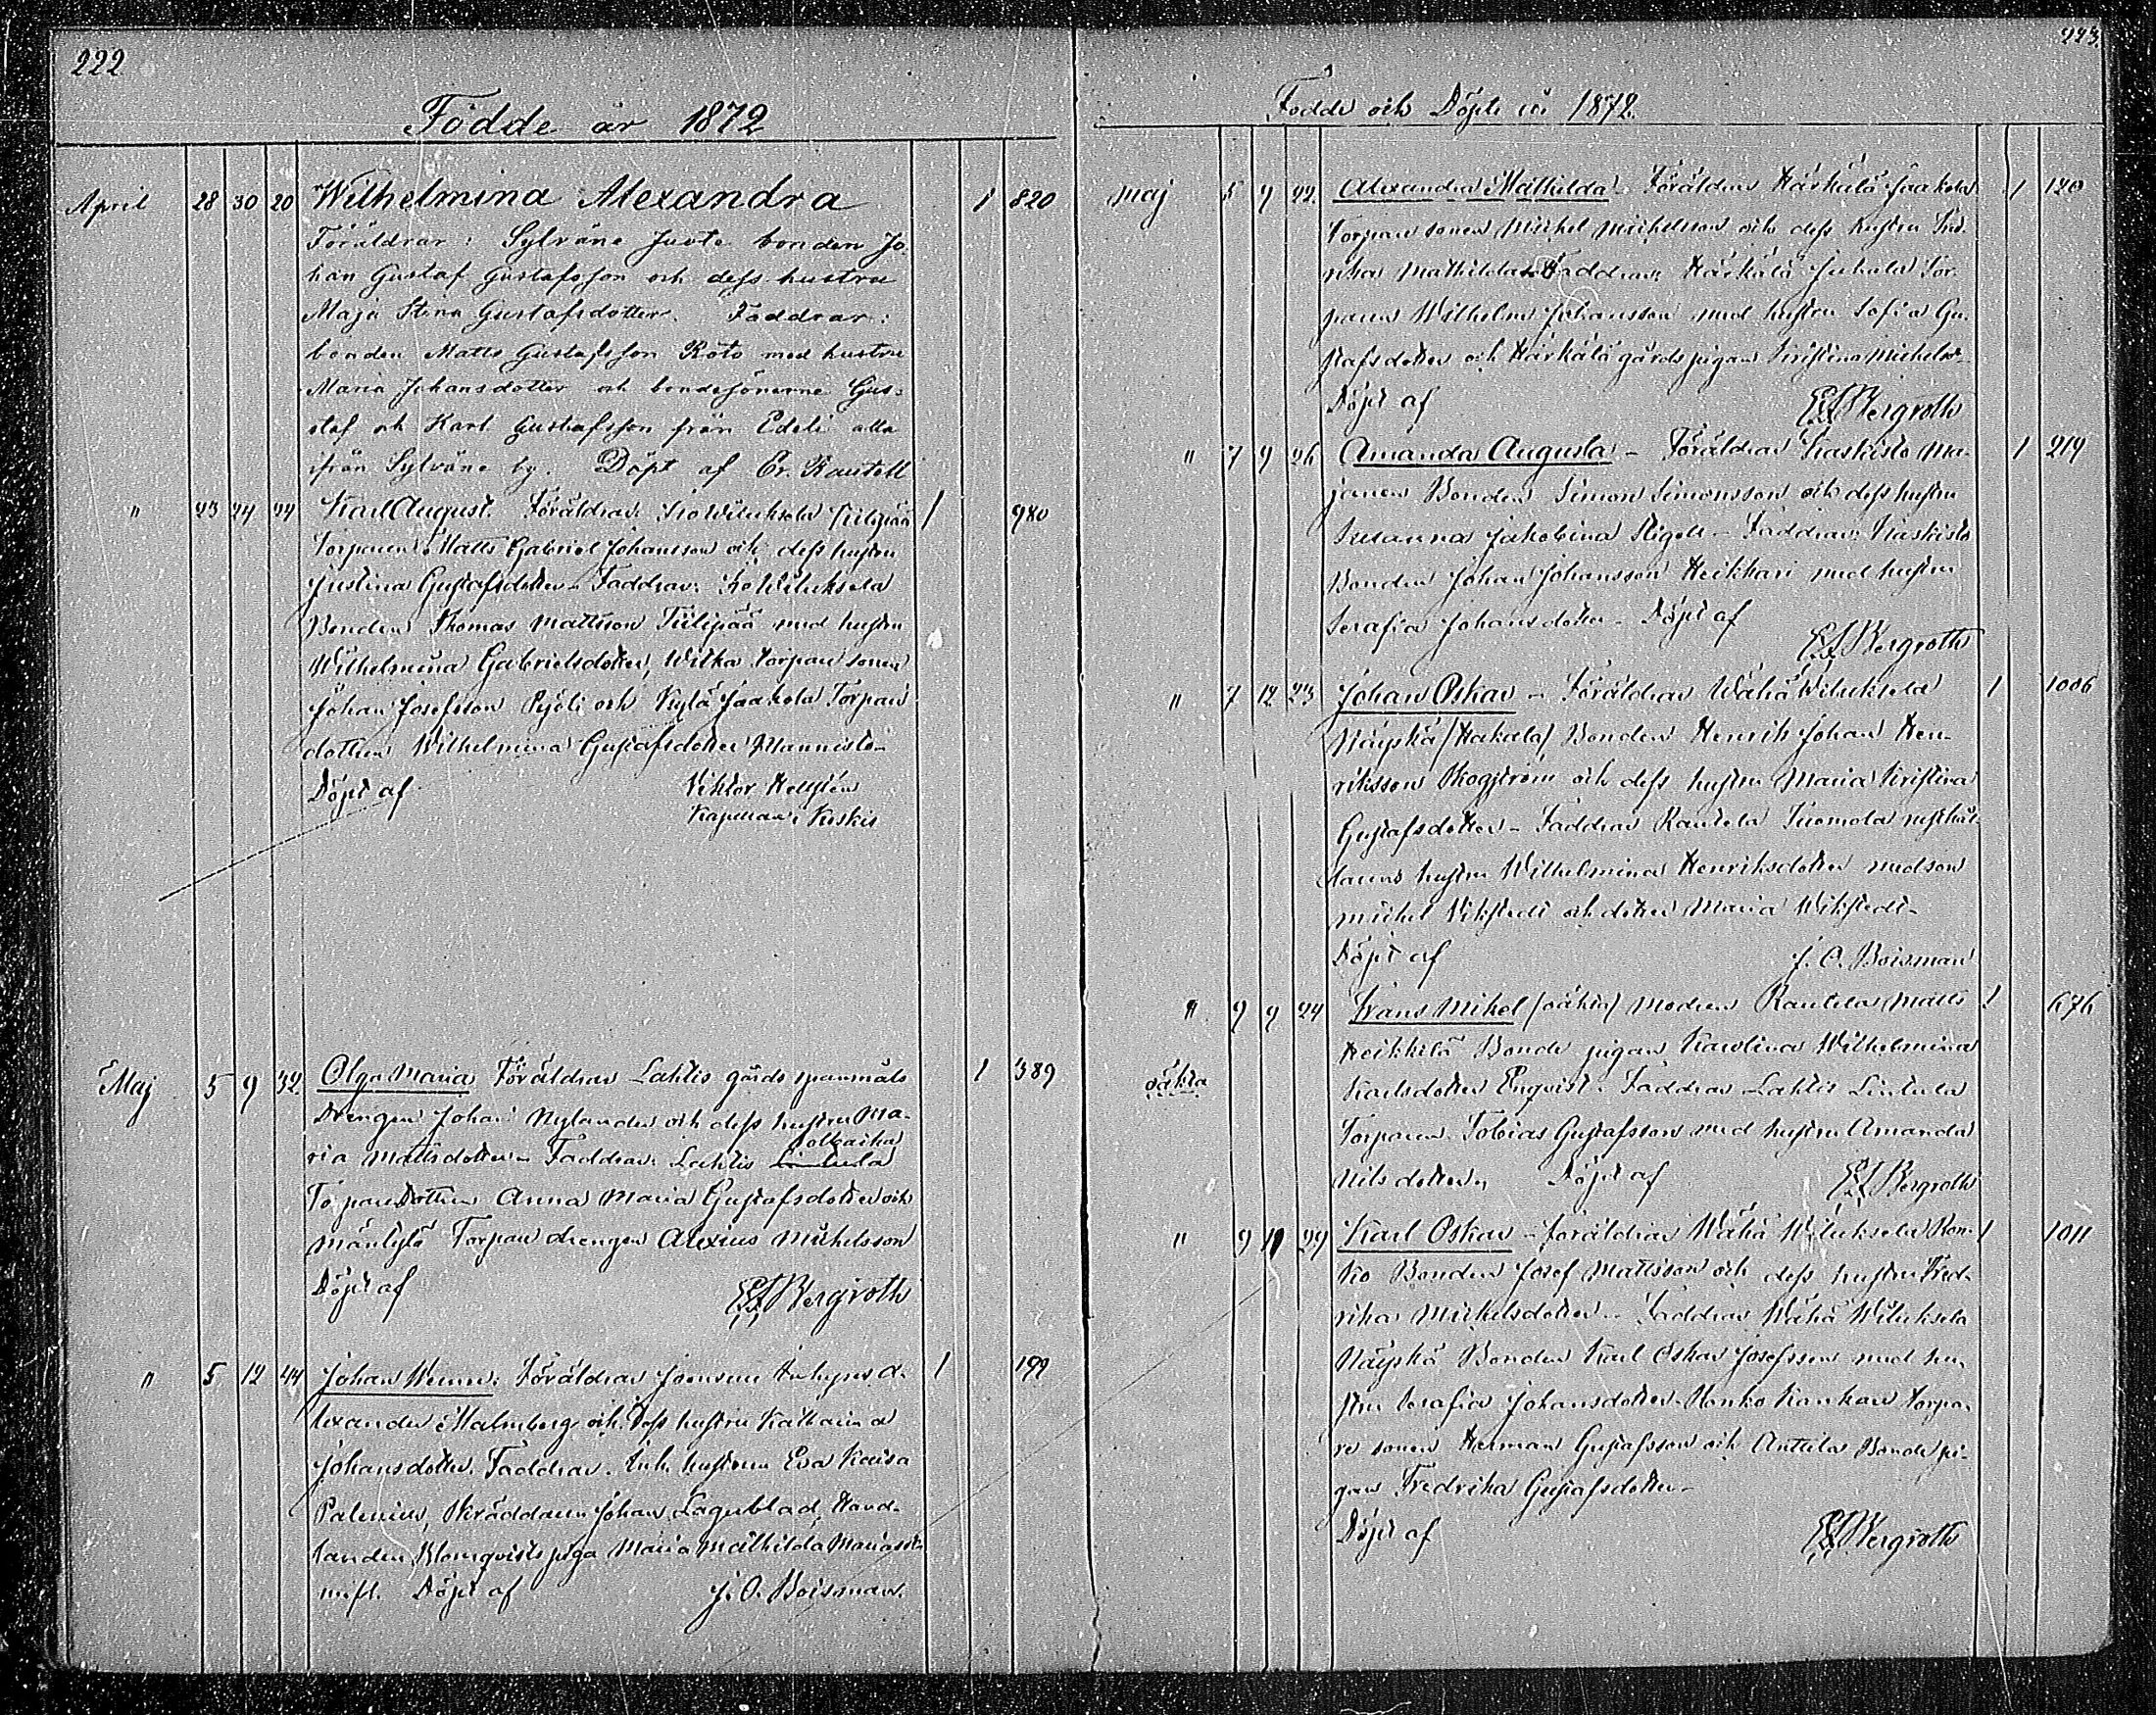 222
Födde år 1872
April 28 30 20 Wilhelmina Alexandra 1 820
Föräldrar: Sylväne Juote bonden Jo-
han Gustaf Gustafsson och dess hustru
Maja Stina Gustafsdotter. Faddrar:
bonden Matts Gustafsson Röto med hustru
Maria Johansdotter och bondesönerne Gus-
staf och Karl Gustafsson från Edeli alla
ifrån Sylväne by. Döpt af Er. Rautell
" 23 24 24 Karl August. Föräldrar: Iso Wiluksela Tiilipää 1 980
Torparen Matts Gabriel Johansson och dess hustru
Justina Gustafsdotter – Faddrar: Iso Wiluksela
Bonden Thomas Mattsson Tiilipää med hustru
Wilhelmina Gabrielsdotter, torpare sonen
Johan Josefsson Pyöli och Kylä Jaakola Torpare
dottren Wilhelmina Gustafsdotter Mannisto –
Döpt af Viktor Hellstén
Kapellan i Koskis
Maj 5 9 32. Olga Maria Föräldrar Lahtis gårds spanmåls
1 389
Drengen Johan Nylander och dess hustru Ma-
ria Mattsdotter – Faddrar: Lahtis Lintula
Torpare Dottren Anna Maria Gustafsdotter och
Mäntylä Torpare drengen Alexius Mickelsson
Döpt af E. F. Bergroth
" 5 12 44 Johan Werner: Föräldrar Joensuu Inhyses A- 1 199
lexander Malmberg och Dess hustru Katharina
Johansdotter. Faddrar. Enk. hustrun Eva Kaisa
Palenius, Skräddaren Johan Lagerblad, Hand-
landen Blomqvists piga Maria Mathilda Mariasdr
Döpt af J. O. Boisman.
223.
Födde och Döpte år 1872.
Maj 5 9 22. Alexandra Mathilda – Föräldrar Härkälä Jaakola 1 120
Torpare sonen Mickel Mickelsson och dess hustru Fred-
rika Mathilda – Faddrar: Härkälä Juhala Tor-
paren Wilhelm Johansson med hustru Sofia Gu-
stafsdotter och Härkälä gårds pigan Kristina Mickelsdr
Döpt af E. F. Bergroth
" 7 9 26 Amanda Augusta – Föräldrar Kaskisto Ma- 1 219
janen Bonden Simon Simonsson och dess hustru
Susanna Jakobina Stigell – Faddrar: Kaskisto
Bonden Johan Johansson Heikkari med hustru
Serafia Johansdotter – Döpt af
E. F. Bergroth
" 7 12 23 Johan Oskar – Föräldrar Wähä Wiluksela 1 1006
Näyskä /Hakala/ Bonden Henrik Johan Hen-
riksson Skogström och dess hustru Maria Kristina
Gustafsdotter – Faddrar Rautela Tuomola rusthål-
larens hustru Wilhelmina Henriksdotter med son
Mickel Vikstedt och dotter Maria Wikstedt –
Döpt af J. O. Boisman
" 9 9 24 Frans Mikel /oäkta/ Modren Rautela Matts 1 676
oäkta
Heikkilä Bonde pigan Karolina Wilhelmina
Karlsdotter Enqvist. Faddrar Lahtis Lintula
Torparen Tobias Gustafsson med hustru Amanda
Nilsdotter, Döpt af E. F. Bergroth
" 9 11 29 Karl Oskar – Föräldrar Wähä Wiluksela Ron- 1 1011
ko Bonden Josef Mattsson och dess hustru Fred-
rika Mickelsdotter – Faddrar Wähä Wiluksela
Näyskä Bonden Karl Oskar Josefsson med hu-
stru Serafia Johansdotter torpa-
re sonen Herman Gustafsson och Anttila Bonde pi-
gan Fredrika Gustafsdotter –
Döpt af E. F. Bergroth